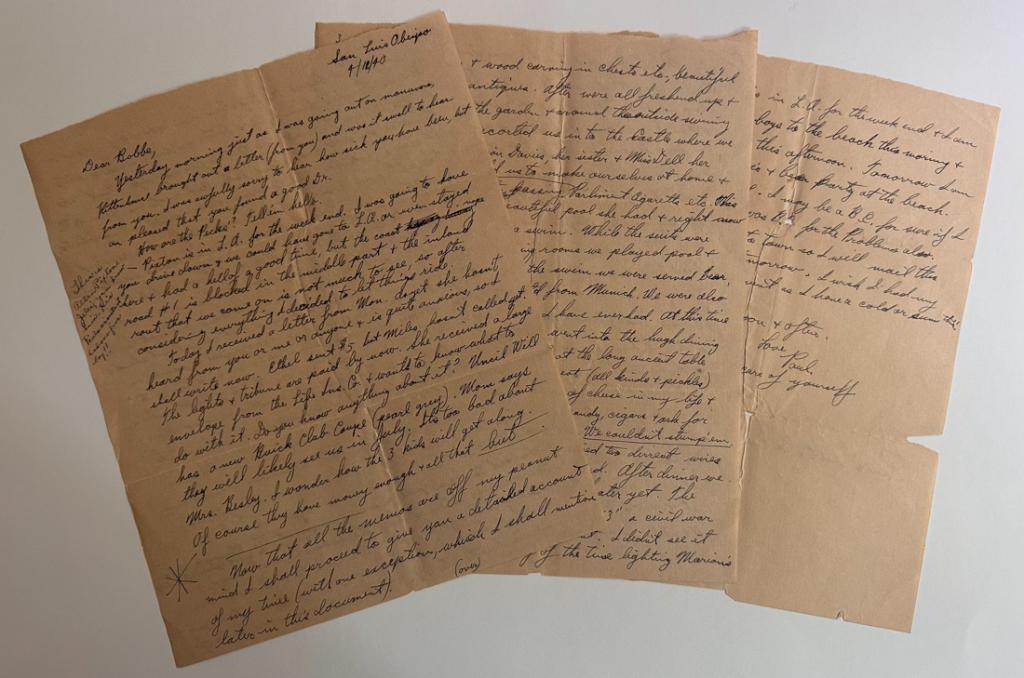 San Luis Obispo
4/18/40
Dear Bobbe,
Yesterday morning just as I was going out on manuvous,
Rittenhouse brought out a letter (from you) and was it swell to hear
from you. I was awfully sorry to hear how sick you have been, but
am pleased that you found a good Dr.
How are the Pecks? Tell em hello.
Piston is in L.A. for the week end. I was going to have
you drive down & we could have gone to L.A. or even stayed
here & had a hell of a good time, but the coast
road #1 is blocked in the middle part & the inland
rout that we come on is not much to see, so after
considering everything I decided to let things ride.
Today I received a letter from Mom. does she hasn't
heard from you or me or anyone & is quite anxious, so I
shall write now. Ethel sent $5 but Miles hasn't called yet.
The lights & tribune are paid by now. She received a large
envelope from the Life Ins. Co. & wants to know what to
do with it. Do you know anything about it? Uncil Will
has a new Buick Club Coupe (pearl grey). Mom says
they will likely see us in July. It's too bad about
Mrs. Besley. I wonder how the 3 kids will get along.
Of course they have money enough & all that but
Now that all the memos are off my peanut
mind I shall proceed to give you a detailed account
of my time (with one exception, which I shall mention
later in this document).
(over)
3
& wood carving in chests etc, beautiful
antiques. After were all freshend up &
the garden & around the outside swiming
scorted us in to the Castle where we
on Davies, her sister & Miss Dell her
us to make ourselves at home &
passing Parliment Cigaretts etc. This
eautiful pool she had & right now
a swim. While the suits were
ing rooms we played pool &
the swim we were served bear,
d from Munich. We were also
I have ever had. At this time
went into the hugh dining
at the long ancient table
eat (all kinds & pickles)
of cheese in my life &
andy, cigars & ask for
We couldn't stump em
ed two dirrent wines
d. After dinner we
ater yet. The
3" a civil war
I didn't see it
of the time lighting Marion's
s in L.A. for the week end & I am
boys to the beach this morning &
this afternoon. Tomorrow I am
& bear party at the beach.
I may be a B.C. for sure if I
was B. for the Problems also.
to town so I will mail this
morrow. I wish I had my
as I have a cold or sum this
on & often.
Love
Paul
care of yourself